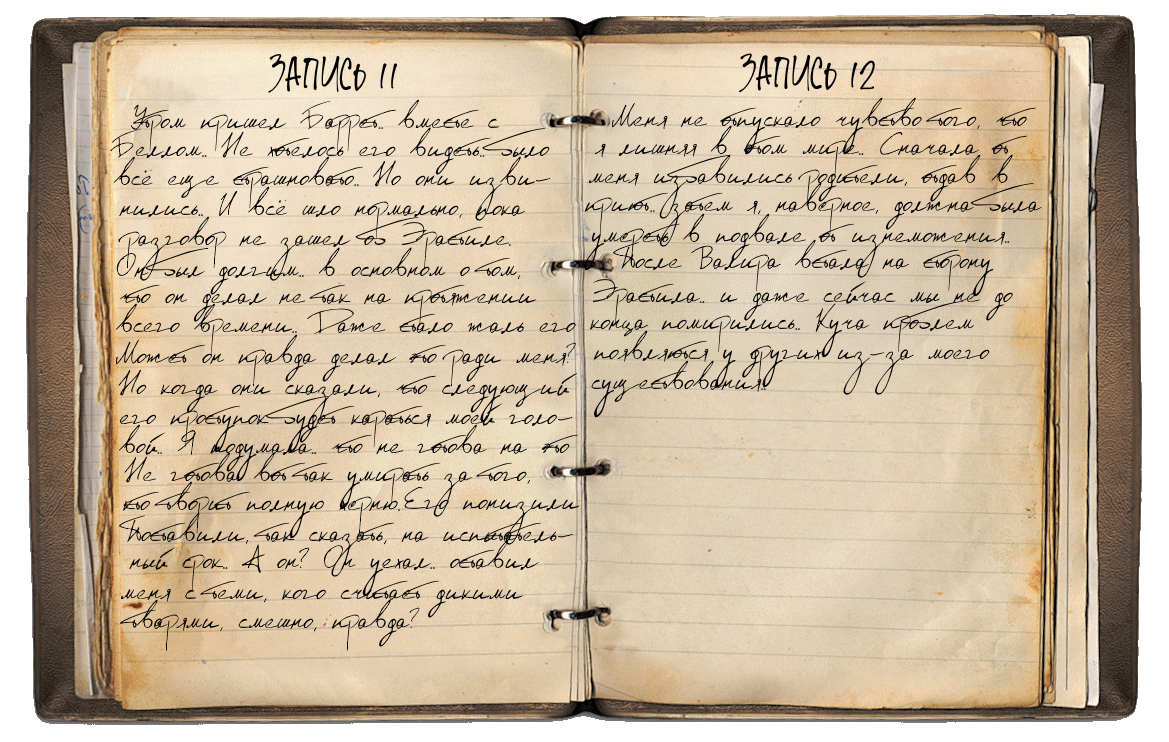 ЗАПИСЬ 11
Утром пришел Баррет.. вместе с
Беллом.. Не хотелось его видеть.. было
всё еще страшновато.. Но они изви-
нились.. И всё шло нормально, пока
разговор не зашел об Эрастиле.
Он был долгим.. в основном о том,
что он делал не так на протяжении
всего времени.. Даже стало жаль его
Может он правда делал это ради меня?
Но когда они сказали, что следующий
его проступок будет караться моей голо-
вой.. Я подумала.. что не готова на это
Не готова вот так умирать за того,
кто творит полную херню. Его понизили
Поставили, так сказать, на испытатель-
ный срок.. А он? Он уехал.. оставил
меня с теми, кого считает дикими
тварями, смешно, правда?
ЗАПИСЬ 12
Меня не отпускало чувство того, что
я лишняя в этом мире.. Сначала от
меня избавились родители, отдав в
приют.. Затем я, наверное, должна была
умереть в подвале от изнеможения..
После Валира встала на сторону
Эрастила.. и даже сейчас мы не до
конца помирились.. Куча проблем
появляются у других из-за моего
существования..